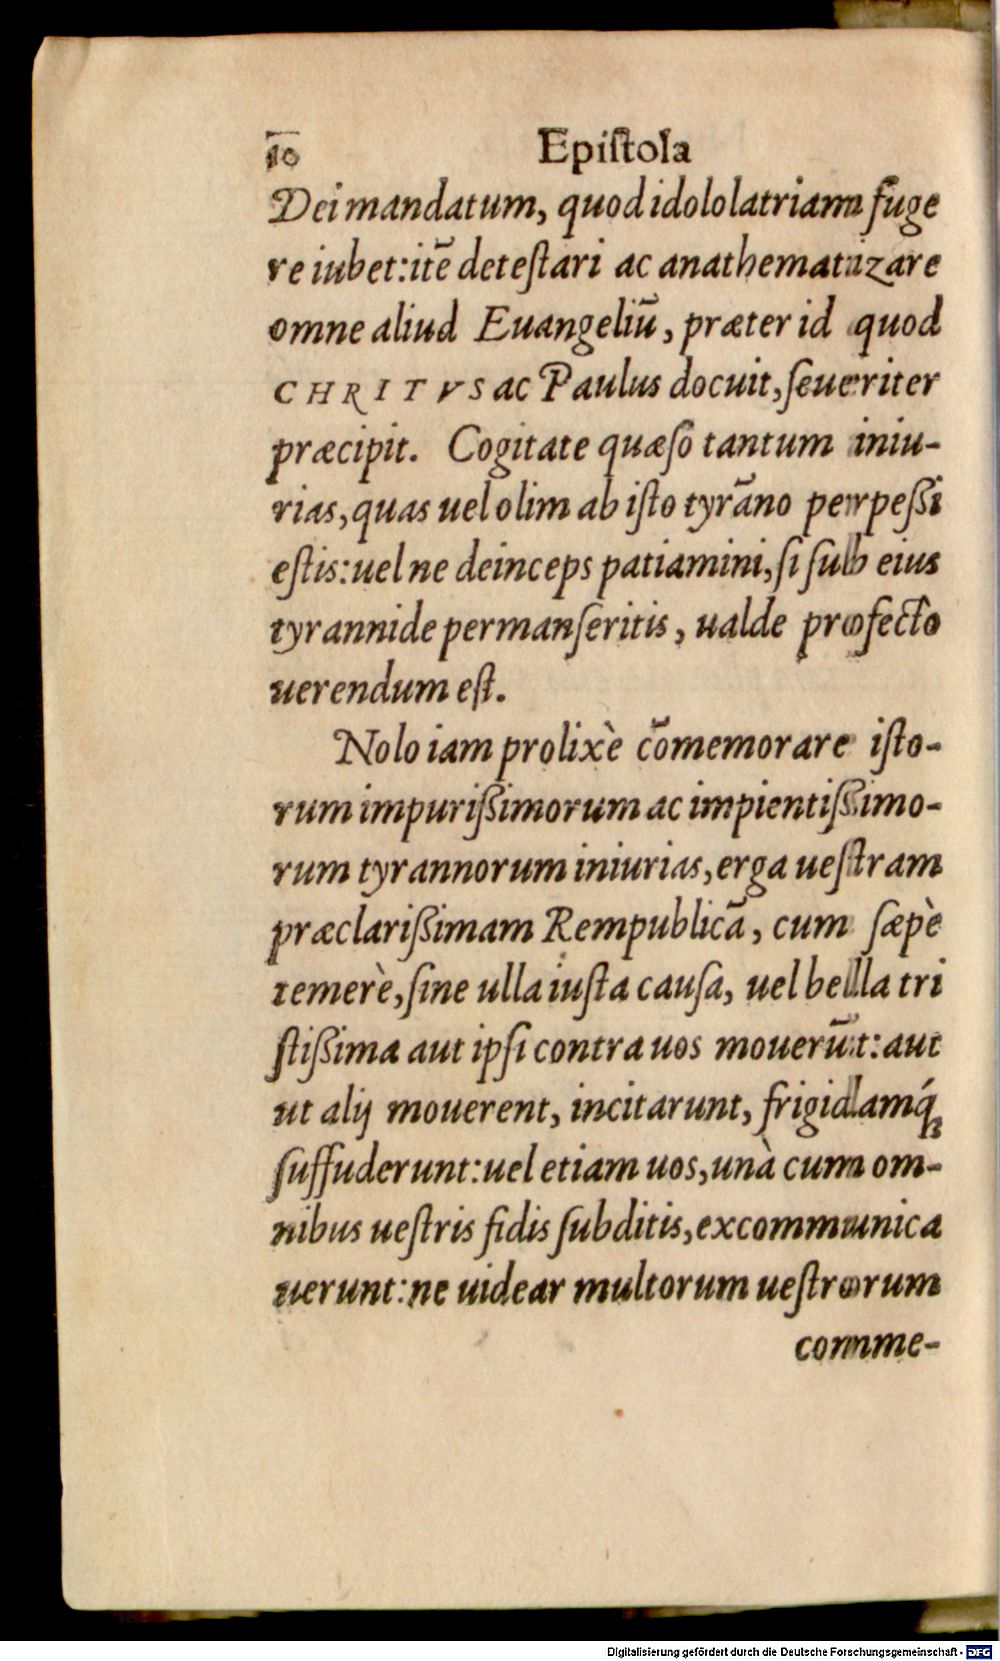 10 Epiſtola
Dei mandatum, quod idololatriam fuge
re iubet: itē deteſtari ac anathematizare
omne aliud Euangeliū, præter id quod
CHRITVS ac Paulus docuit, ſeueriter
præcipit. Cogitate quæſo tantum iniu-
rias, quas uel olim ab iſto tyrāno perpeßi
eſtis: uel ne deinceps patiamini, ſi ſub eius
tyrannide permanſeritis, ualde profecto
uerendum eſt.
Nolo iam prolixè cōmemorare iſto-
rum impurißimorum ac impientißimo-
rum tyrannorum iniurias, erga ueſtram
præclarißimam Rempublicā, cum ſæpè
temerè, ſine ulla iuſta cauſa, uel bella tri
ſtißima aut ipſi contra uos mouerūt: aut
ut alij mouerent, incitarunt, frigidamq́;
ſuffuderunt: uel etiam uos, unà cum om-
nibus ueſtris fidis ſubditis, excommunica
uerunt: ne uidear multorum ueſtrorum
comme-
Digitalisierung gefördert durch die Deutsche Forschungsgemeinschaft - DFG